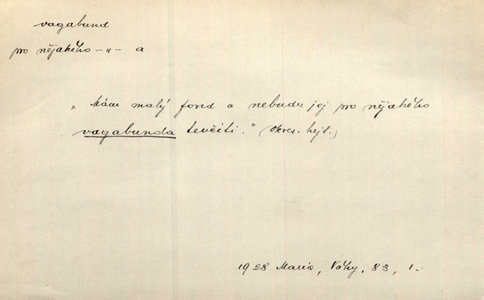 vagabund
pro nějakého -"- a
„Mám malý fond a nebudu jej pro nějakého
vagabunda tenčiti." (Okres. hejt.)
1928 Maria, Váhy, 83, 1.